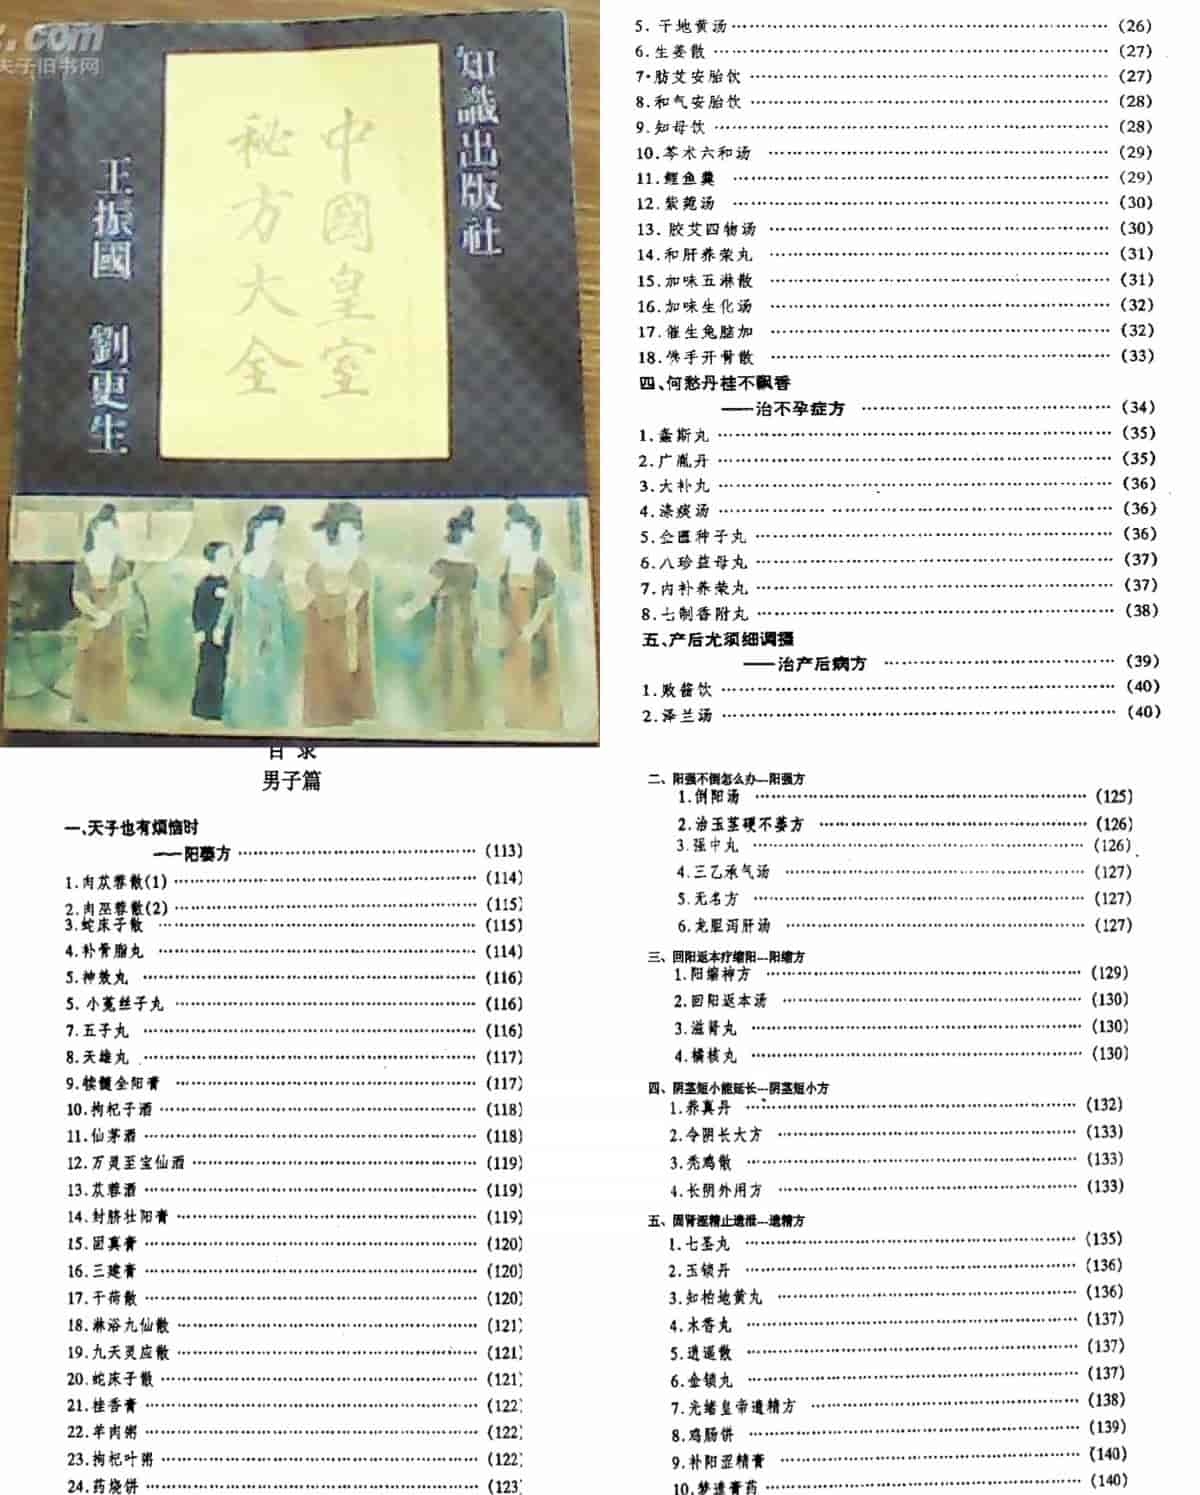 .com
天子旧书网
知識出版社
中國皇室
秘方大全
王振國 劉更生
5. 干地黄汤 (26)
6. 生姜散 (27)
7·胎艾安胎饮 (27)
8. 和气安胎饮 (28)
9. 知母饮 (28)
10. 芩术六和汤 (29)
11. 鲤鱼羹 (29)
12. 紫菀汤 (30)
13. 胶艾四物汤 (30)
14. 和肝养荣丸 (31)
15. 加味五淋散 (31)
16. 加味生化汤 (32)
17. 催生兔脑加 (32)
18. 佛手开骨散 (33)
四、何愁丹桂不飘香
——治不孕症方 (34)
1. 螽斯丸 (35)
2. 广胤丹 (35)
3. 大补丸 (36)
4. 涤痰汤 (36)
5. 金匮种子丸 (36)
6. 八珍益母丸 (37)
7. 内补养荣丸 (37)
8. 七制香附丸 (38)
五、产后尤须细调摄
——治产后病方 (39)
1. 败酱饮 (40)
2. 泽兰汤 (40)
目 录
男子篇
一、天子也有烦恼时
——阳萎方 (113)
1. 肉苁蓉散(1) (114)
2. 肉苁蓉散(2) (115)
3. 蛇床子散 (115)
4. 补骨脂丸 (114)
5. 神效丸 (116)
5. 小菟丝子丸 (116)
7. 五子丸 (116)
8. 天雄丸 (117)
9. 犊髓全阳膏 (117)
10. 枸杞子酒 (118)
11. 仙茅酒 (118)
12. 万灵至宝仙酒 (119)
13. 苁蓉酒 (119)
14. 封脐壮阳膏 (119)
15. 固真膏 (120)
16. 三建膏 (120)
17. 干荷散 (120)
18. 淋浴九仙散 (121)
19. 九天灵应散 (121)
20. 蛇床子散 (121)
21. 挂香膏 (122)
22. 羊肉粥 (122)
23. 枸杞叶粥 (122)
24. 药烧饼 (123)
二、阳强不倒怎么办---阳强方
1. 倒阳汤 (125)
2. 治玉茎硬不萎方 (126)
3. 强中丸 (126)
4. 三乙承气汤 (127)
5. 无名方 (127)
6. 龙胆泻肝汤 (127)
三、回阳返本疗缩阳---阳缩方
1. 阳缩神方 (129)
2. 回阳返本汤 (130)
3. 滋肾丸 (130)
4. 橘核丸 (130)
四、阴茎短小能延长---阴茎短小方
1. 养真丹 (132)
2. 令阴长大方 (133)
3. 秃鸡散 (133)
4. 长阴外用方 (133)
五、固肾涩精止遗泄---遗精方
1. 七圣丸 (135)
2. 玉锁丹 (136)
3. 知柏地黄丸 (136)
4. 木香丸 (137)
5. 逍遥散 (137)
6. 金锁丸 (137)
7. 光绪皇帝遗精方 (138)
8. 鸡肠饼 (139)
9. 补阳涩精膏 (140)
10. 梦遗膏药 (140)